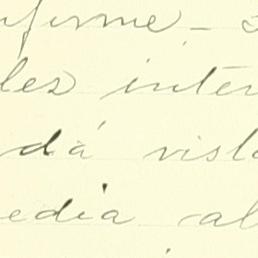 nforme - s
les inter
dá vista
edia al